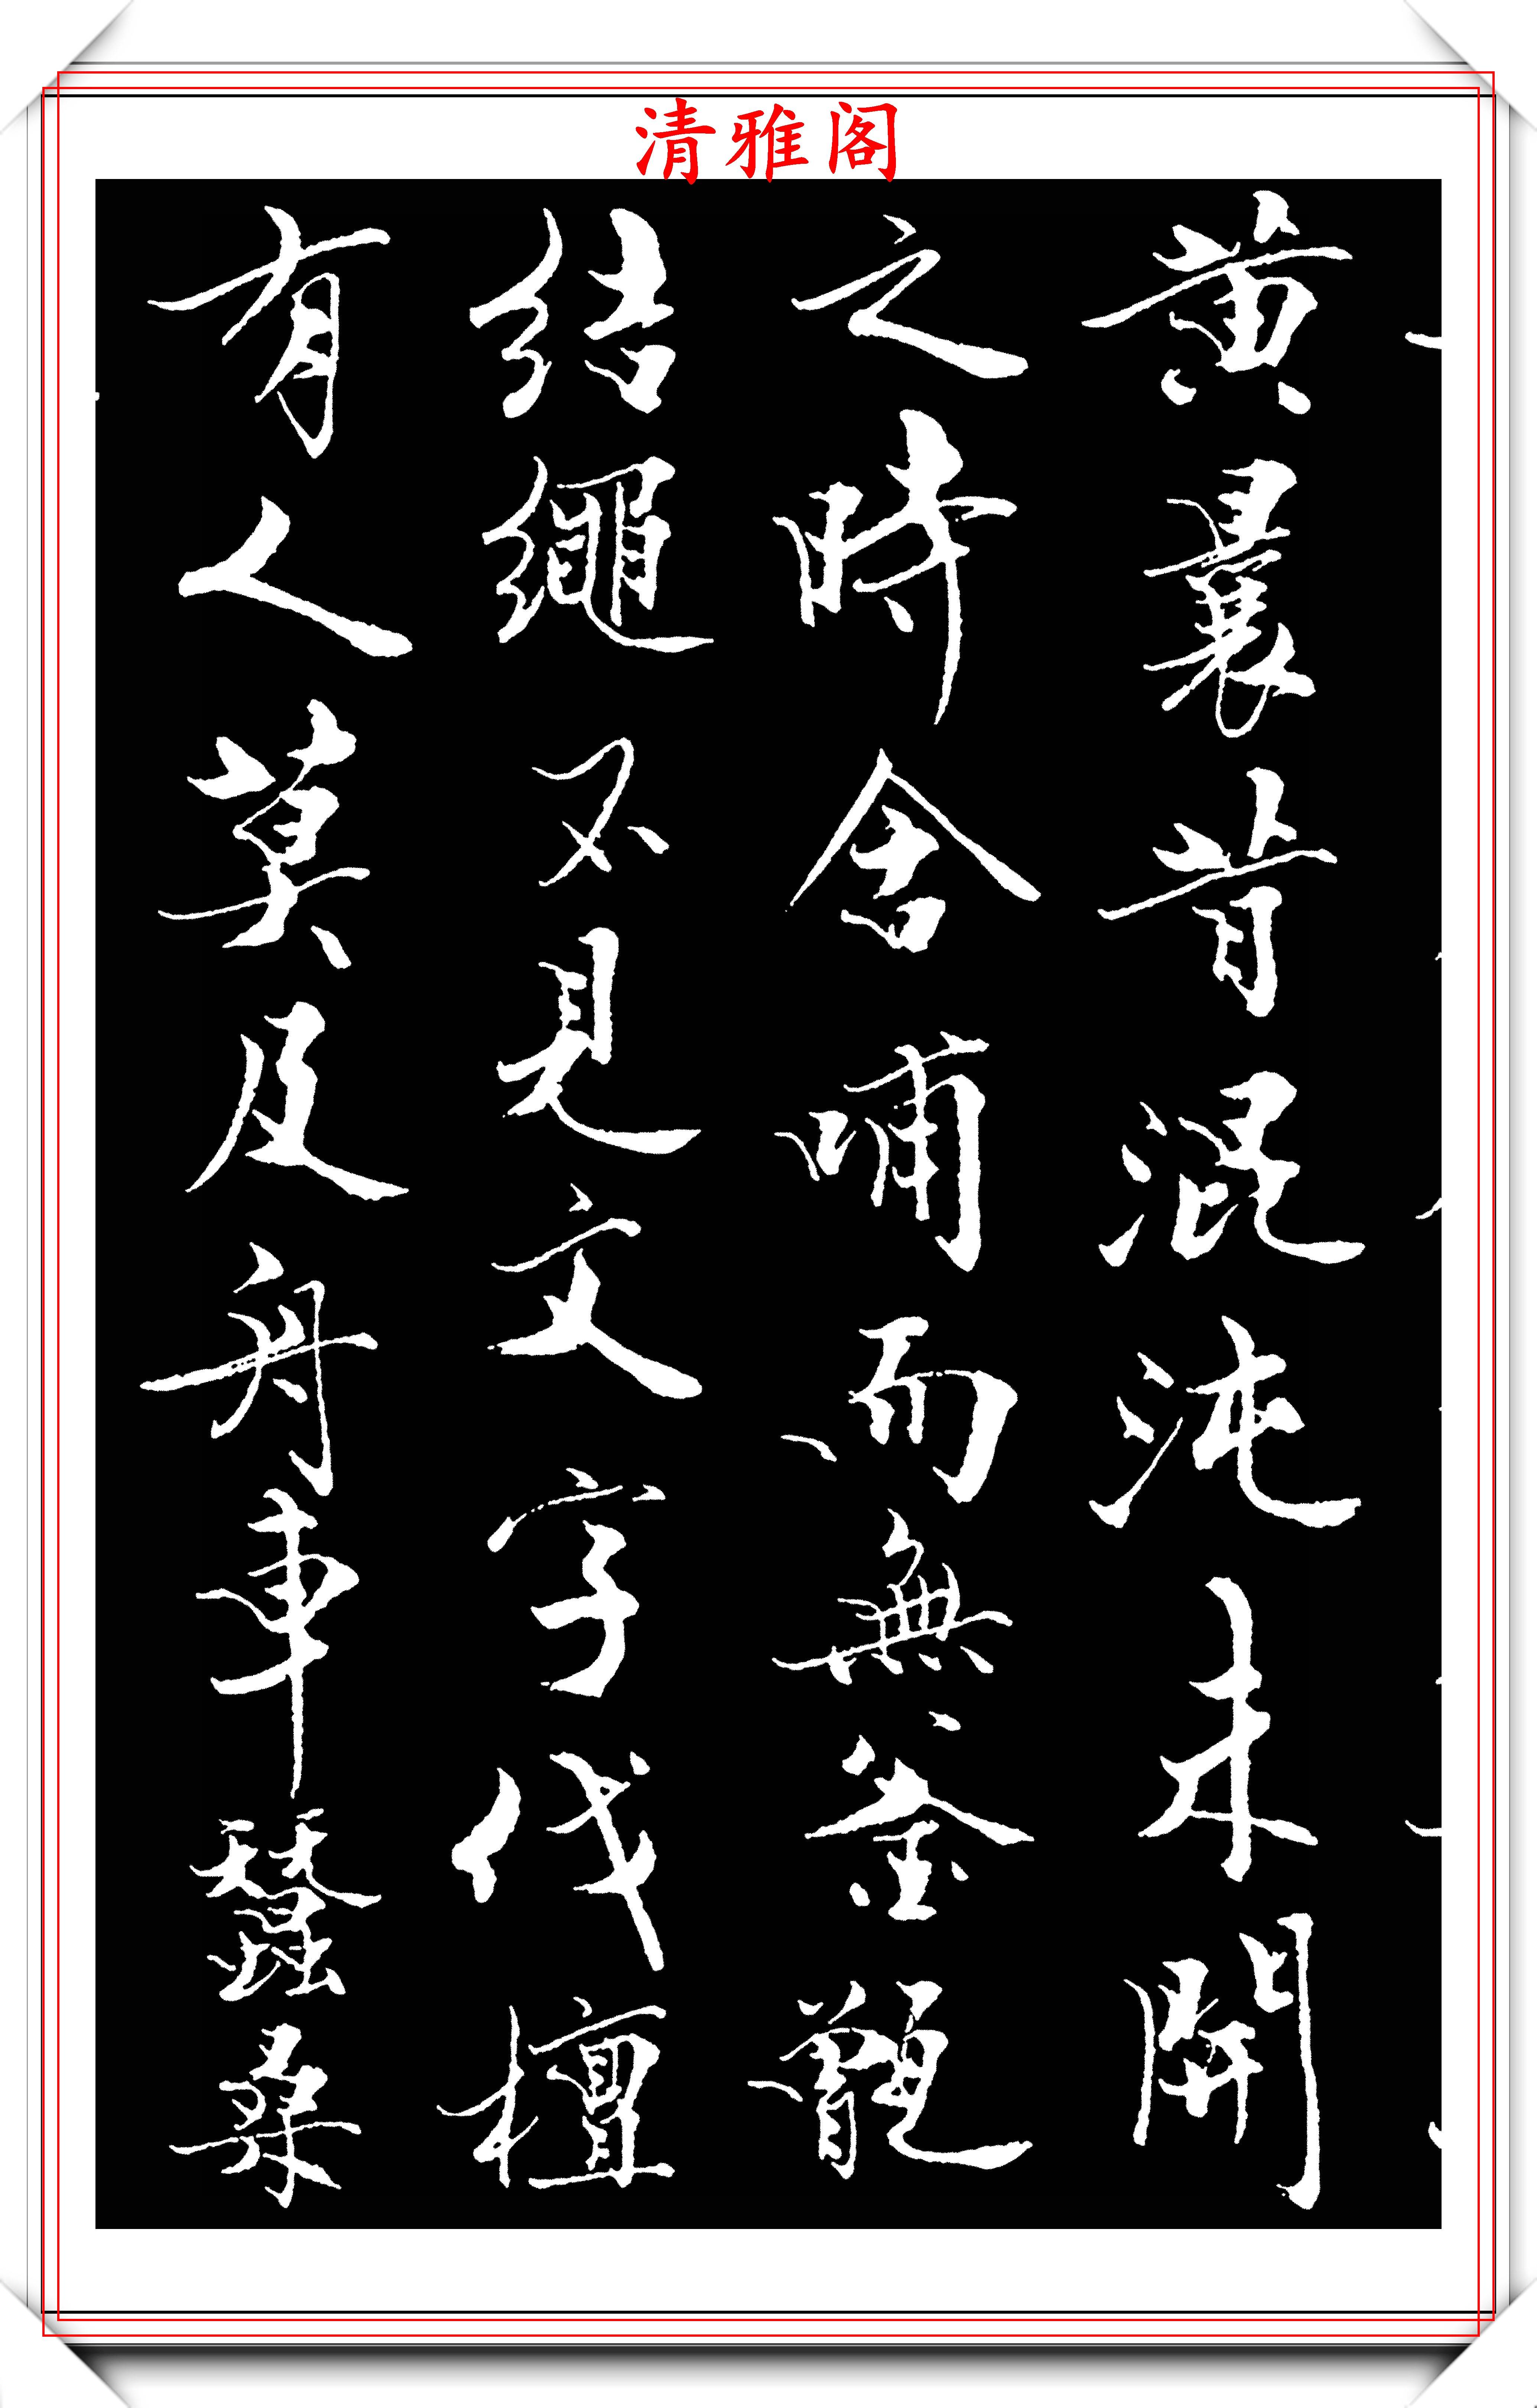 清雅阁
黄曩昔混沌未開
之時含哺而無釜
結繩不見文字伐檀
有人莫及舟車蠶桑